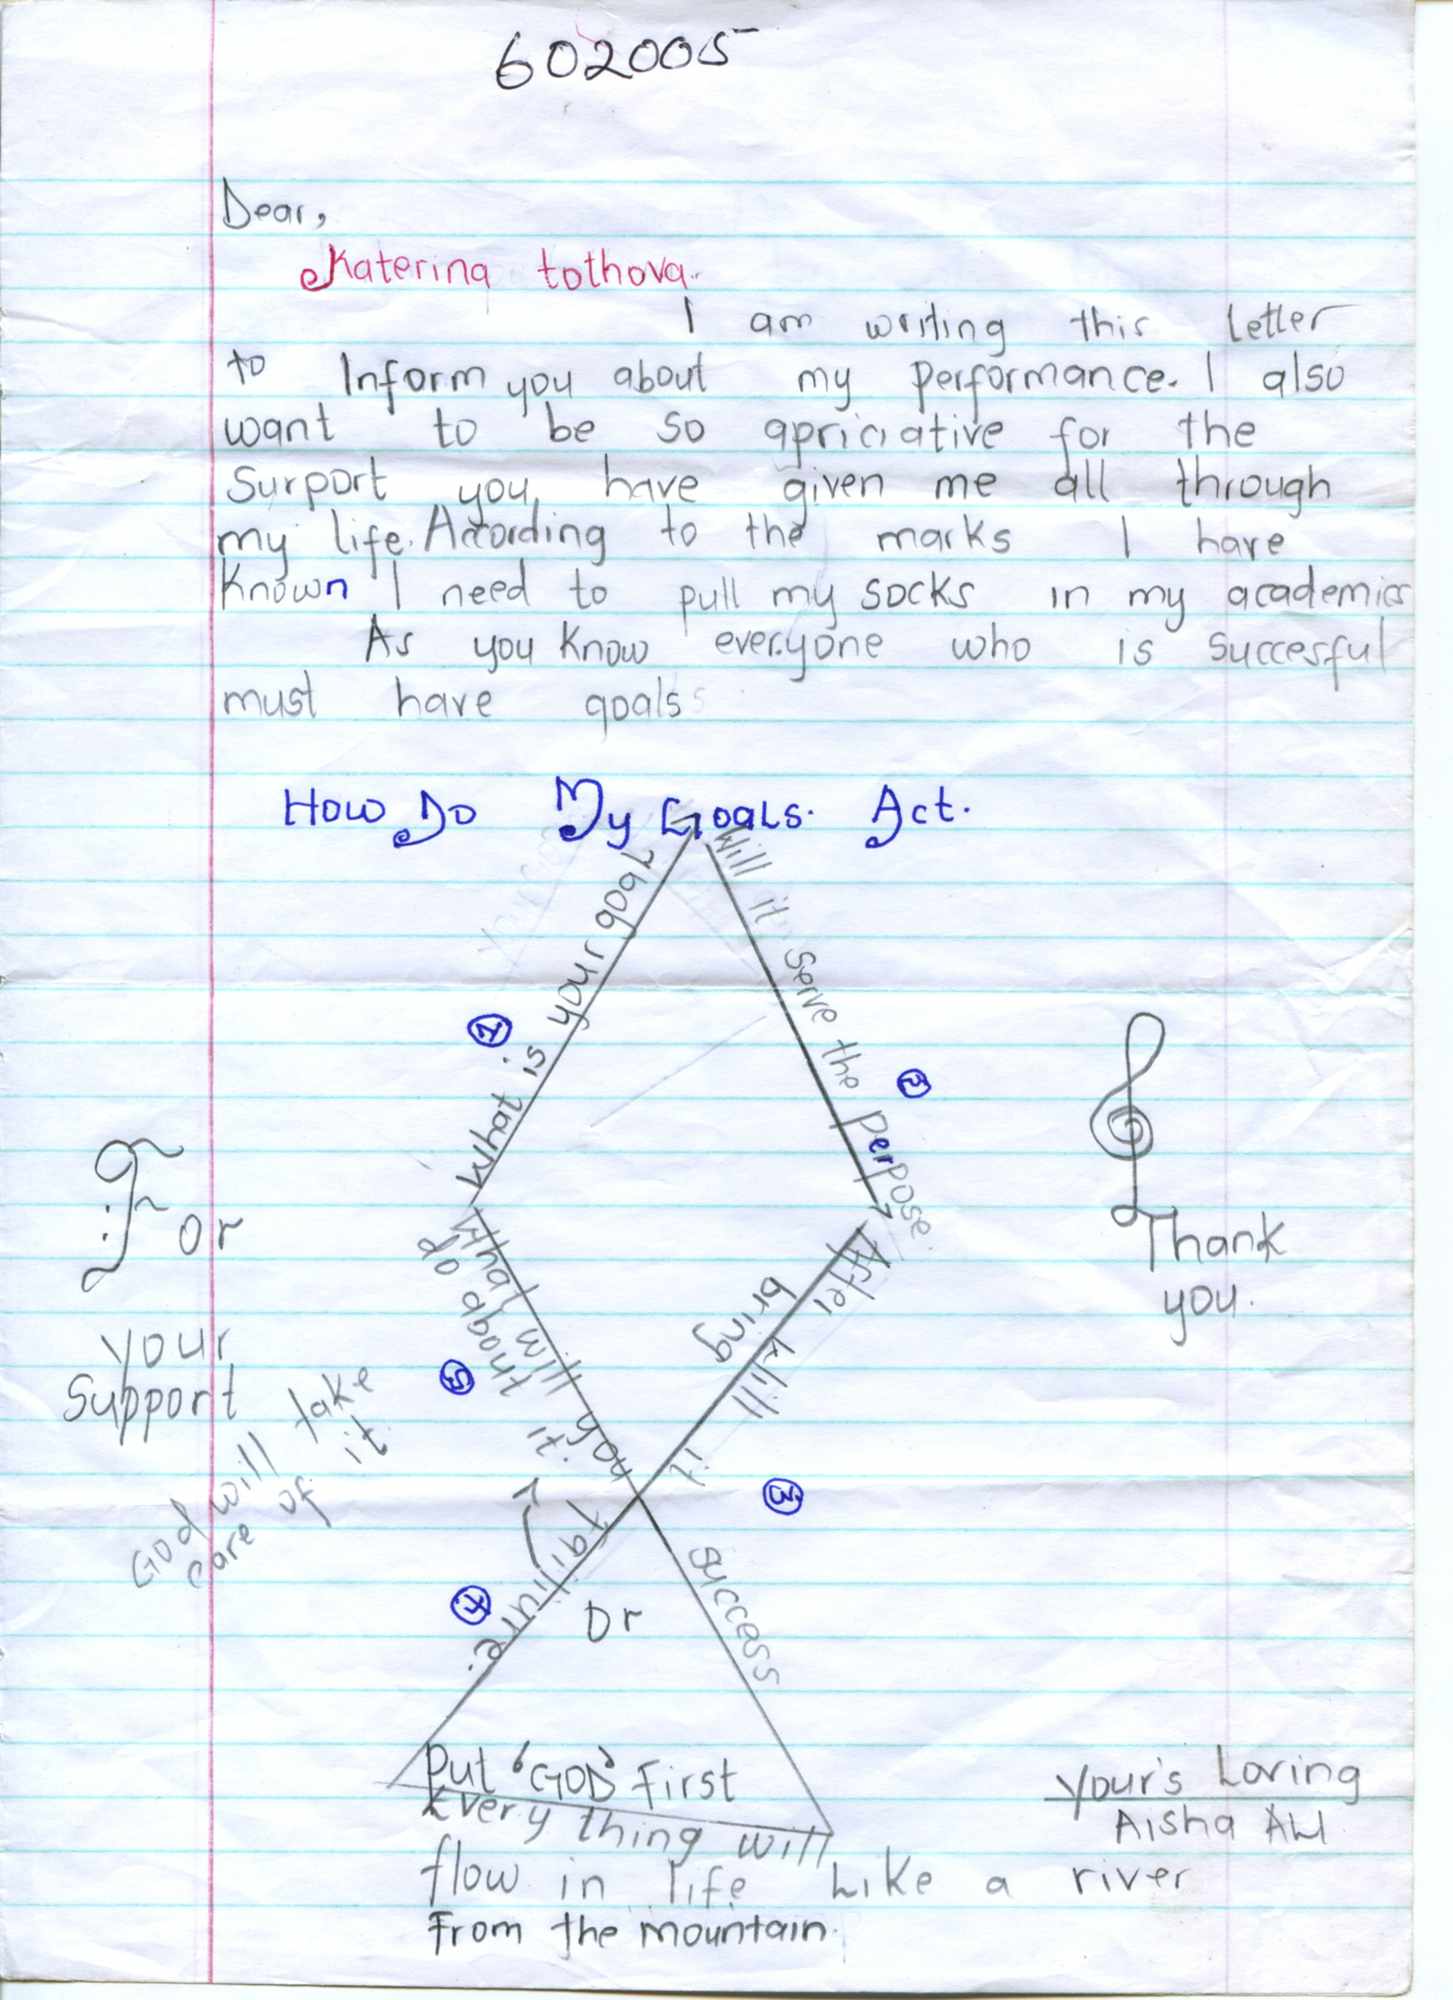 602005
Dear,
Katerina tothova.
I am writing this Letter
to Inform you about my performance. I also
want to be so apriciative for the
Surport you have given me all through
my life. Acording to the marks I have
Known I need to pull my socks in my academics
As you know everyone who is succesful
must have goals
How Do My Goals. Act.
1
What is your goal
Will it serve the perpose.
2
Thank
you.
For
your
Support
God will take
care of it.
What will you
do about it.
5
After
bring
it
3
failiure.
4
Or
success
Put 'GOD' First
Every thing will
flow in life Like a river
From the mountain.
Your's Loving
Aisha Ali